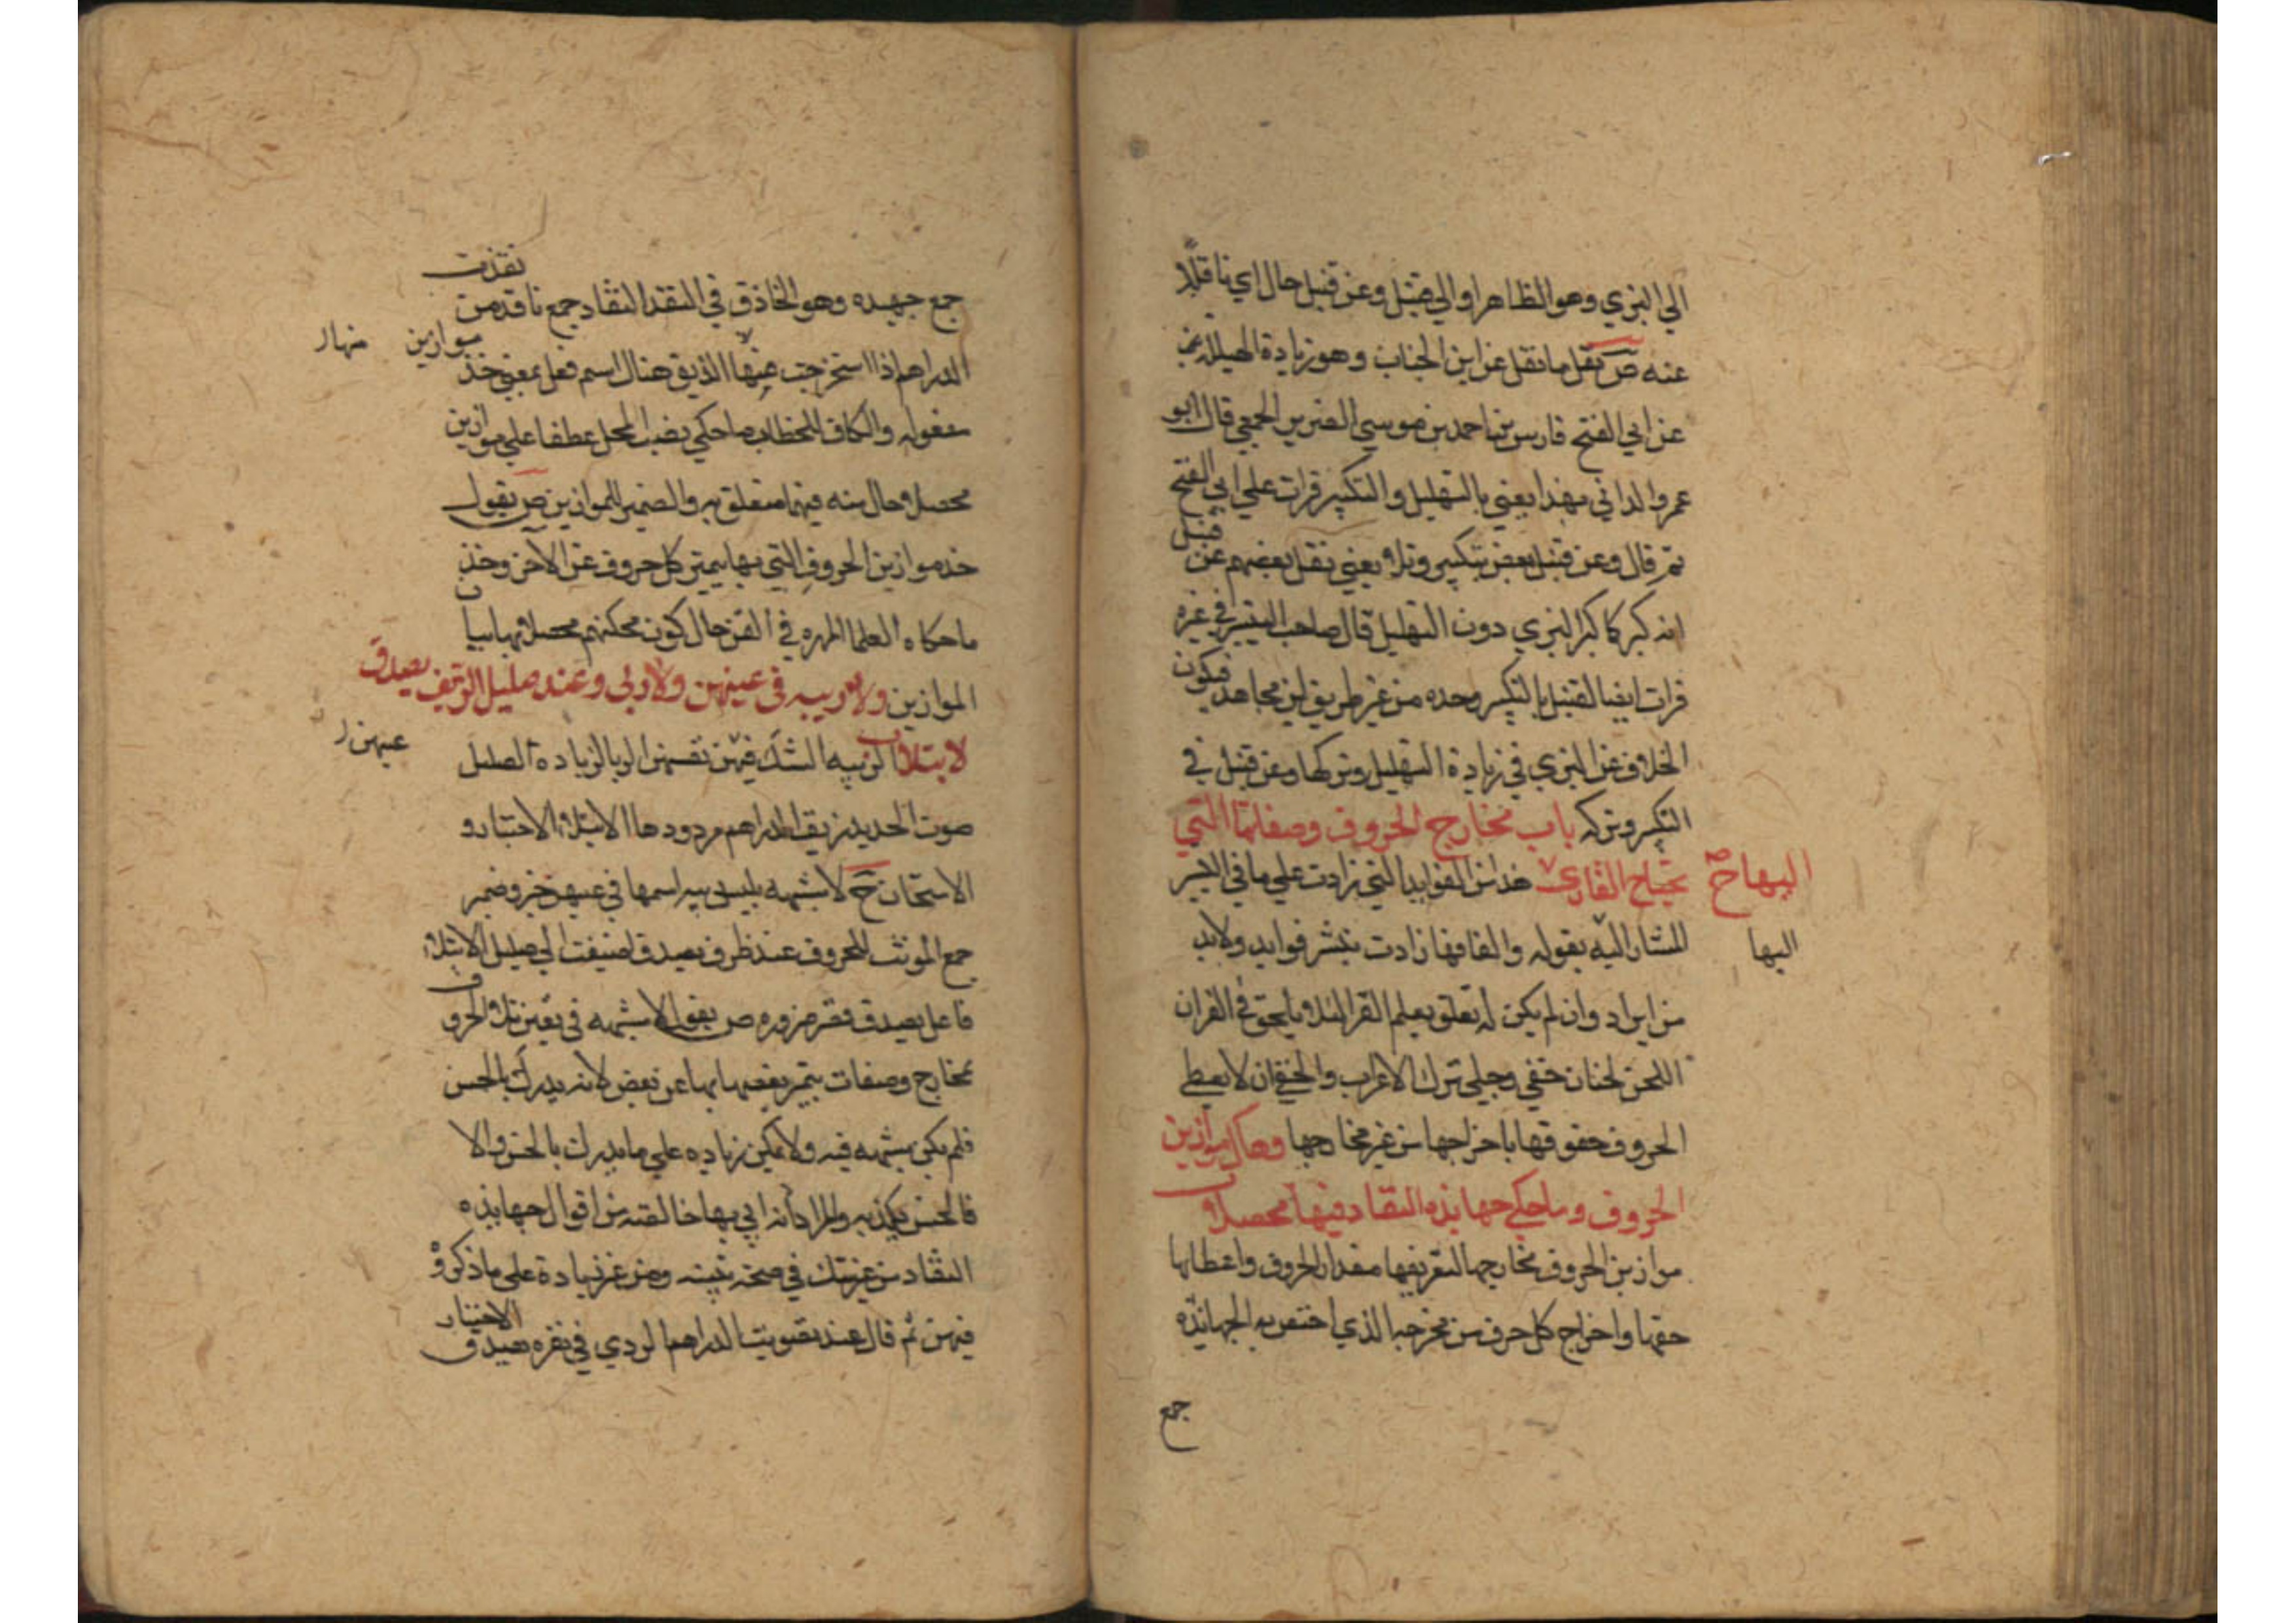 الي البزي وهو الظاهر او الي قنبل وعن قنبل حال اي ناقلا
عنه ص نقل ما نقل عن ابن الحباب وهو زيادة الهيللة
عن ابي الفتح فارس بن احمد بن موسي الضرير الحمصي قال ابو
عمرو الداني بهذا يعني بالتهليل والتكبير قرات علي ابي الفتح
ثم قال وعن قنبل بعض بتكبيره تلا يعني نقل بعضهم عن قنبل
انه كبر كما كبر البزي دون التهليل قال صاحب التيسير في غيره
قرات ايضا لقنبل بالتكبير وحده من غير طريق ابن مجاهد فيكون
الخلاف عن البزي في زيادة التهليل وتركها وعن قنبل في
التكبير وتركه باب مخارج الحروف وصفاتها التي
يحتاج القارئ اليها هذا من الفوايد التي زادت علي ما في التيسير
اليها
المشار اليه بقوله والفافها زادت بنشر فوايد ولابد
من ايراده وان لم يكن له تعلق بعلم القرا لئلا يلحق في القران
اللحن لحنان خفي وجلي ترك الاعراب والخفي ان لا يعطي
الحروف حقوقها باخراجها من غير مخارجها وهاك موازين
الحروف وما حكي جهابذة النقاد فيها محصلا
موازين الحروف مخارجها لتعريفها مقدار الحروف واعطائها
حقها واخراج كل حرف من مخرجه الذي اختص به الجهابذه
جمع
جمع جهبذه وهو الحاذق في النقد النقاد جمع ناقد من نقدت
الدراهم اذا استخرجت هنا اسم فعل بمعني خذ موازين
مفعوله والكاف للخطاب ما حكي نصب المحل عطفا علي موازين
محصلا حال منه فيها متعلق به والضمير للموازين ص يقول
خذ موازين الحروف التي بها يميز كل حروف عن الاخر وخذ
ما حكاه العلما المهره في الفن حال كون محكيهم محصلا بها بيان
الموازين ولا ريبه في عينهن ولا ربي وعند صليل الزيف يصدق
الابتلا الريبه الشك فيهن نفسهن الربا الزياده الصليل
عينهن
صوت الحديد زيف الدراهم مردودها الابتلا الاختبار و
الامتحان ح لا شبهه بليس ريبه اسمها في عينهن خبر وضمير
جمع المونث للحروف عند ظرف يصدق اضيفت الي صليل الابتلا
فاعل يصدق قصر ضروره ص يقول لا شبهه في تعين تلك الحروف
مخارج وصفات يتميز بعضها بها عن بعض لانه يدرك بالحس
فلم يكن شبهه فيه ولا يمكن زياده علي ما يدرك بالحس والا
فالحس يكذبه والمراد انه اتي بها خالصة من اقوال جهابذه
النقاد من غير شك في صحته بينه ومن غير زيادة علي ما ذكروا
فيهن ثم قال عند تصويت الدراهم الردي في نقره يصدق الاختبار